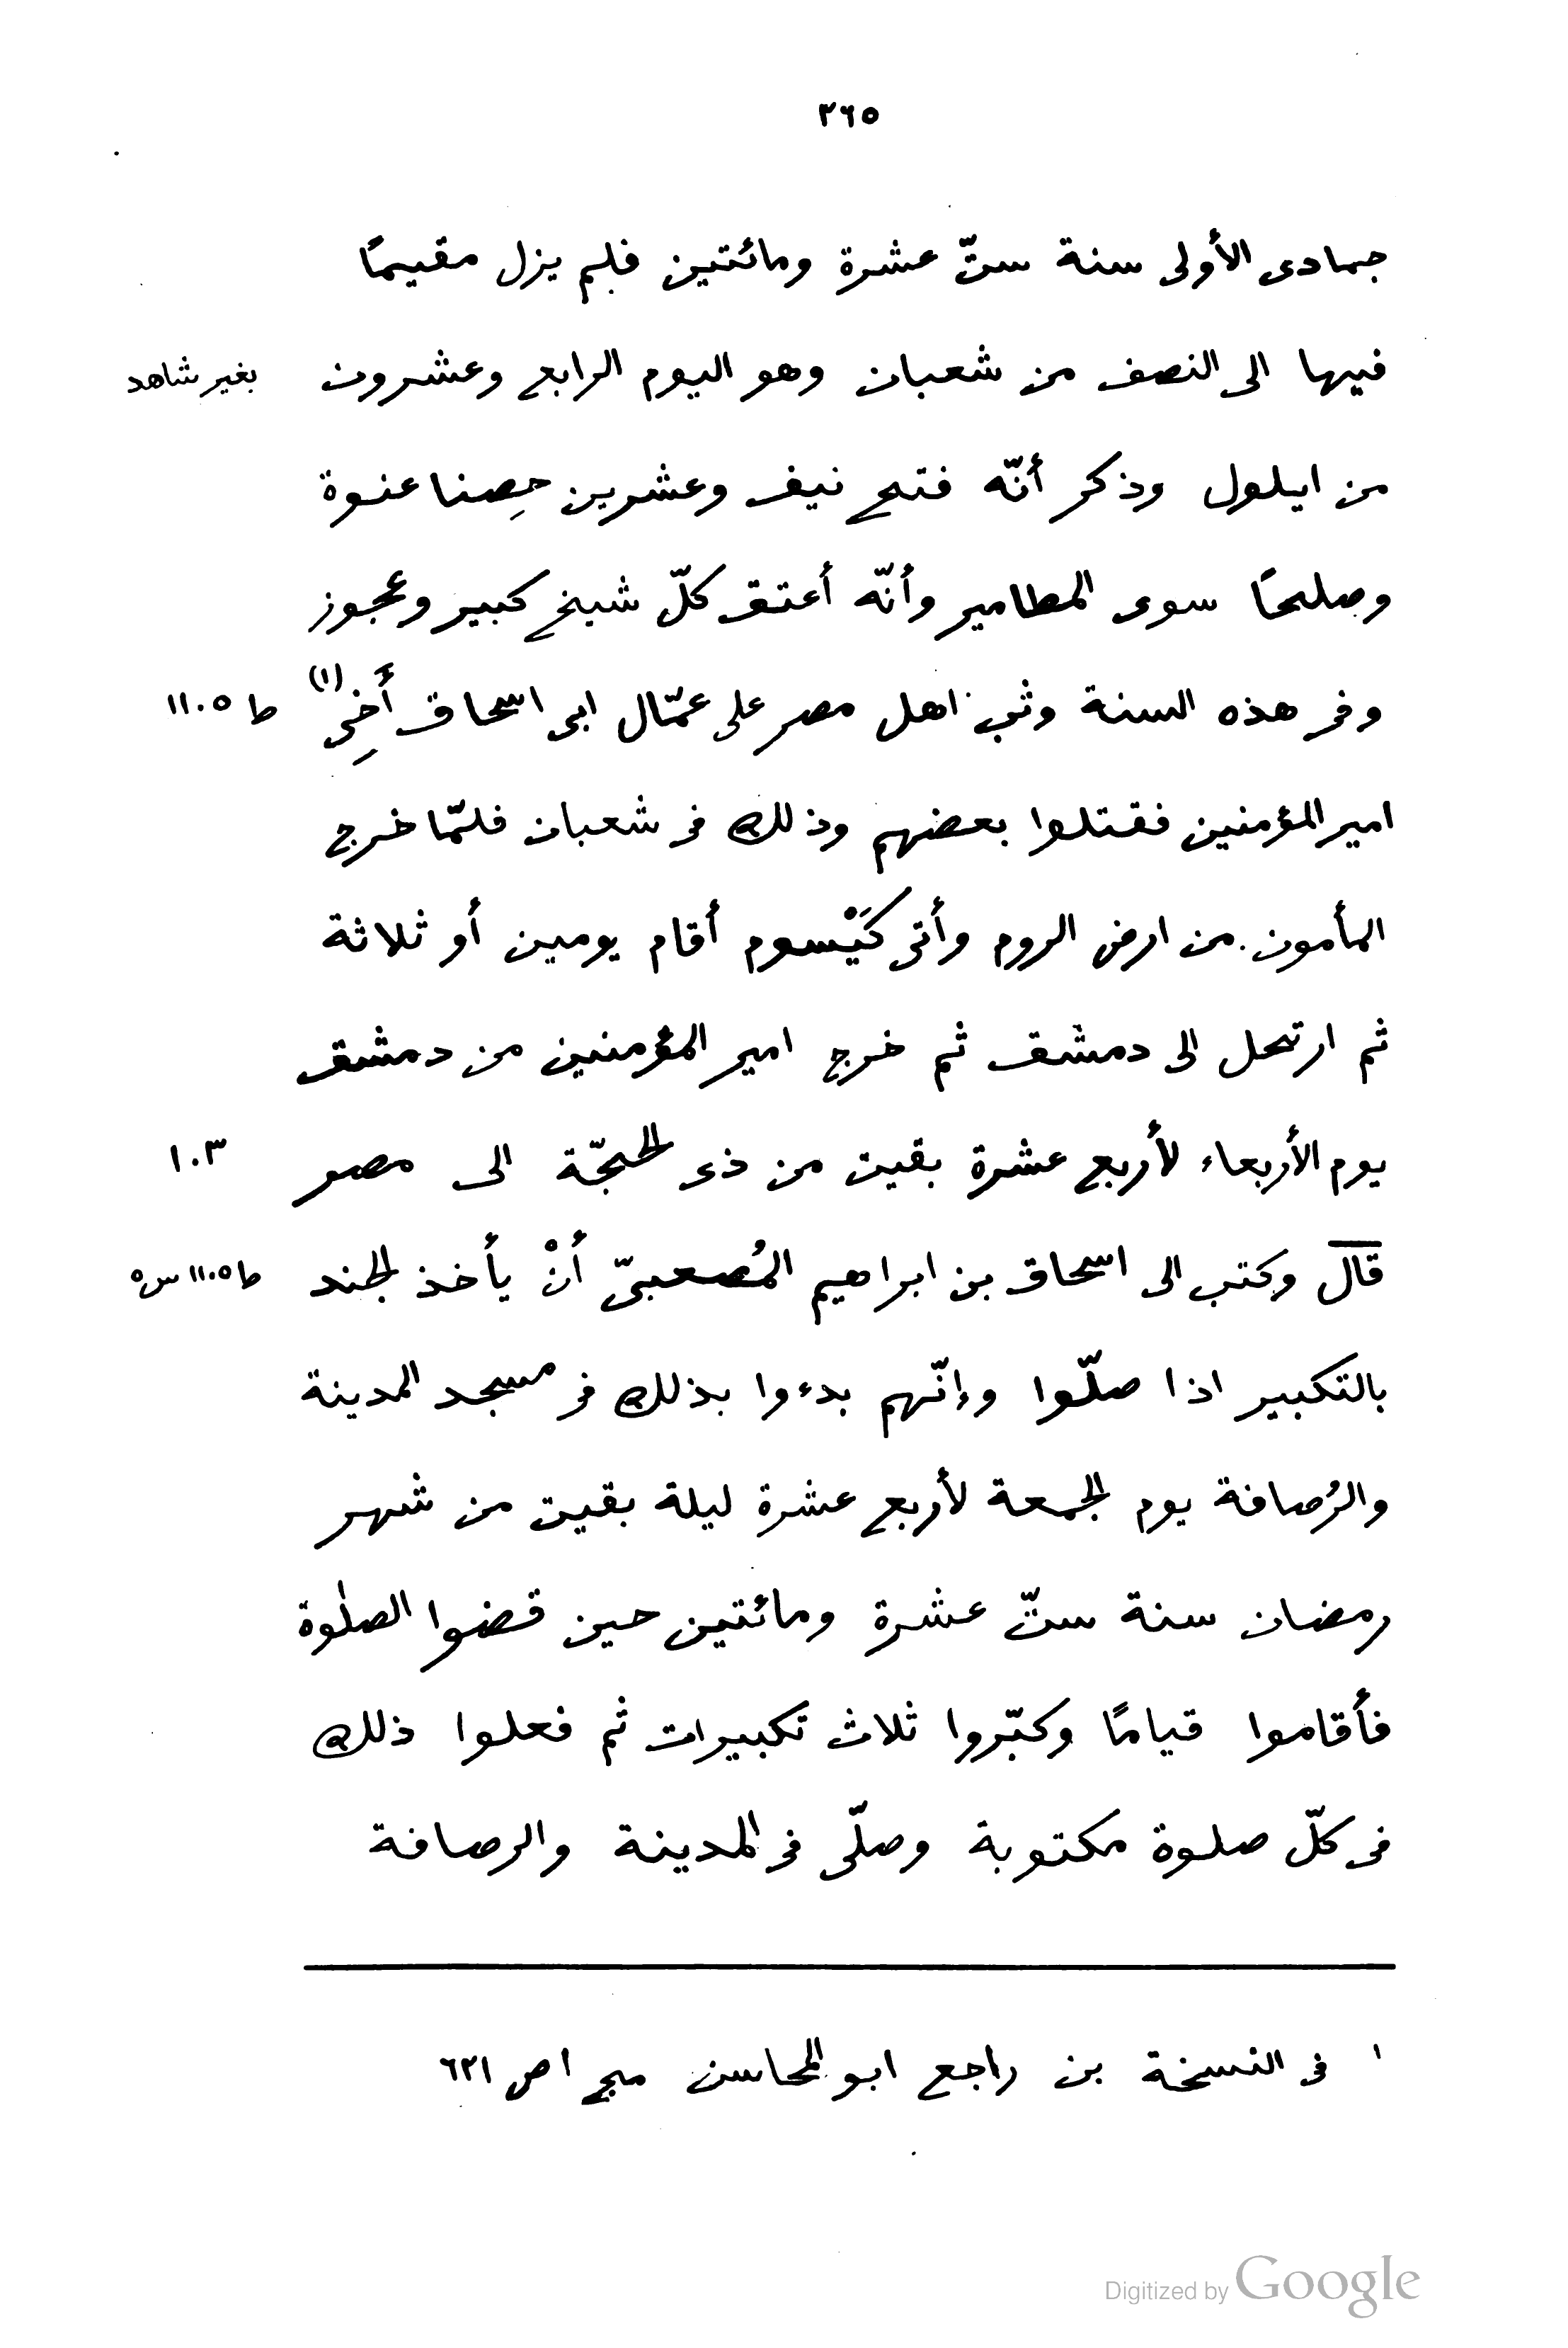 ٢٦٥
جمادى الأولى سنة ستّ عشرة ومائتين فلم يزل مقيمًا
فيها الى النصف من شعبان وهو اليوم الرابع وعشرون بغير شاهد
من ايلول وذكر أنّه فتح نيف وعشرين حِصنا عنوة
وصلحًا سوى المطامير وأنّه أعتق كلّ شيخ كبير وعجوز
وفى هذه السنة وثب اهل مصر على عمّال ابى اسحاق أَخِى (١) ط ١١٠٥
امير المؤمنين فقتلوا بعضهم وذلك فى شعبان فلمّا خرج
المأمون من ارض الروم وأتى كَيْسوم أقام يومين أو ثلاثة
ثم ارتحل الى دمشق ثم خرج امير المؤمنين من دمشق
يوم الأربعاء لأربع عشرة بقيت من ذى الحجّة الى مصر ١٠٣
قال وكتب الى اسحاق بن ابراهيم المُصعبىّ أنْ يأخذ الجند ط ١١٠٥ س ٥
بالتكبير اذا صلّوا وإنّهم بدءوا بذلك فى مسجد المدينة
والرُصافة يوم الجمعة لأربع عشرة ليلة بقيت من شهر
رمضان سنة ستّ عشرة ومائتين حين قضوا الصلٰوة
فأقاموا قيامًا وكبّروا ثلاث تكبيرات ثم فعلوا ذلك
فى كلّ صلوة مكتوبة وصلّى فى المدينة والرصافة
١ فى النسخة بن راجع ابو المحاسن مج ١ ص ٦٢١
Digitized by Google